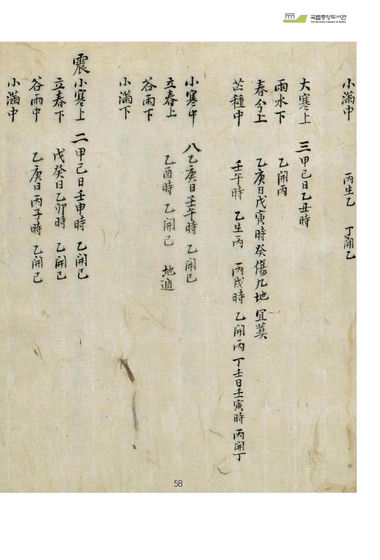 국립중앙도서관
小滿中 丙生乙 丁開乙
大寒上 三甲己日乙丑時
雨水下 乙開丙
春分上 乙庚日戊寅時癸傷九地 宜葬
芒種中 壬午時 乙生丙 丙戌時 乙開丙 丁壬日壬寅時 丙開丁
小寒中 八乙庚日壬午時 乙開己
立春上 乙酉時 乙開己 地遁
谷雨下
小滿下
震 小寒上 二甲己日壬申時 乙開己
立春下 戊癸日乙卯時 乙開己
谷雨中 乙庚日丙子時 乙開己
小滿中
58